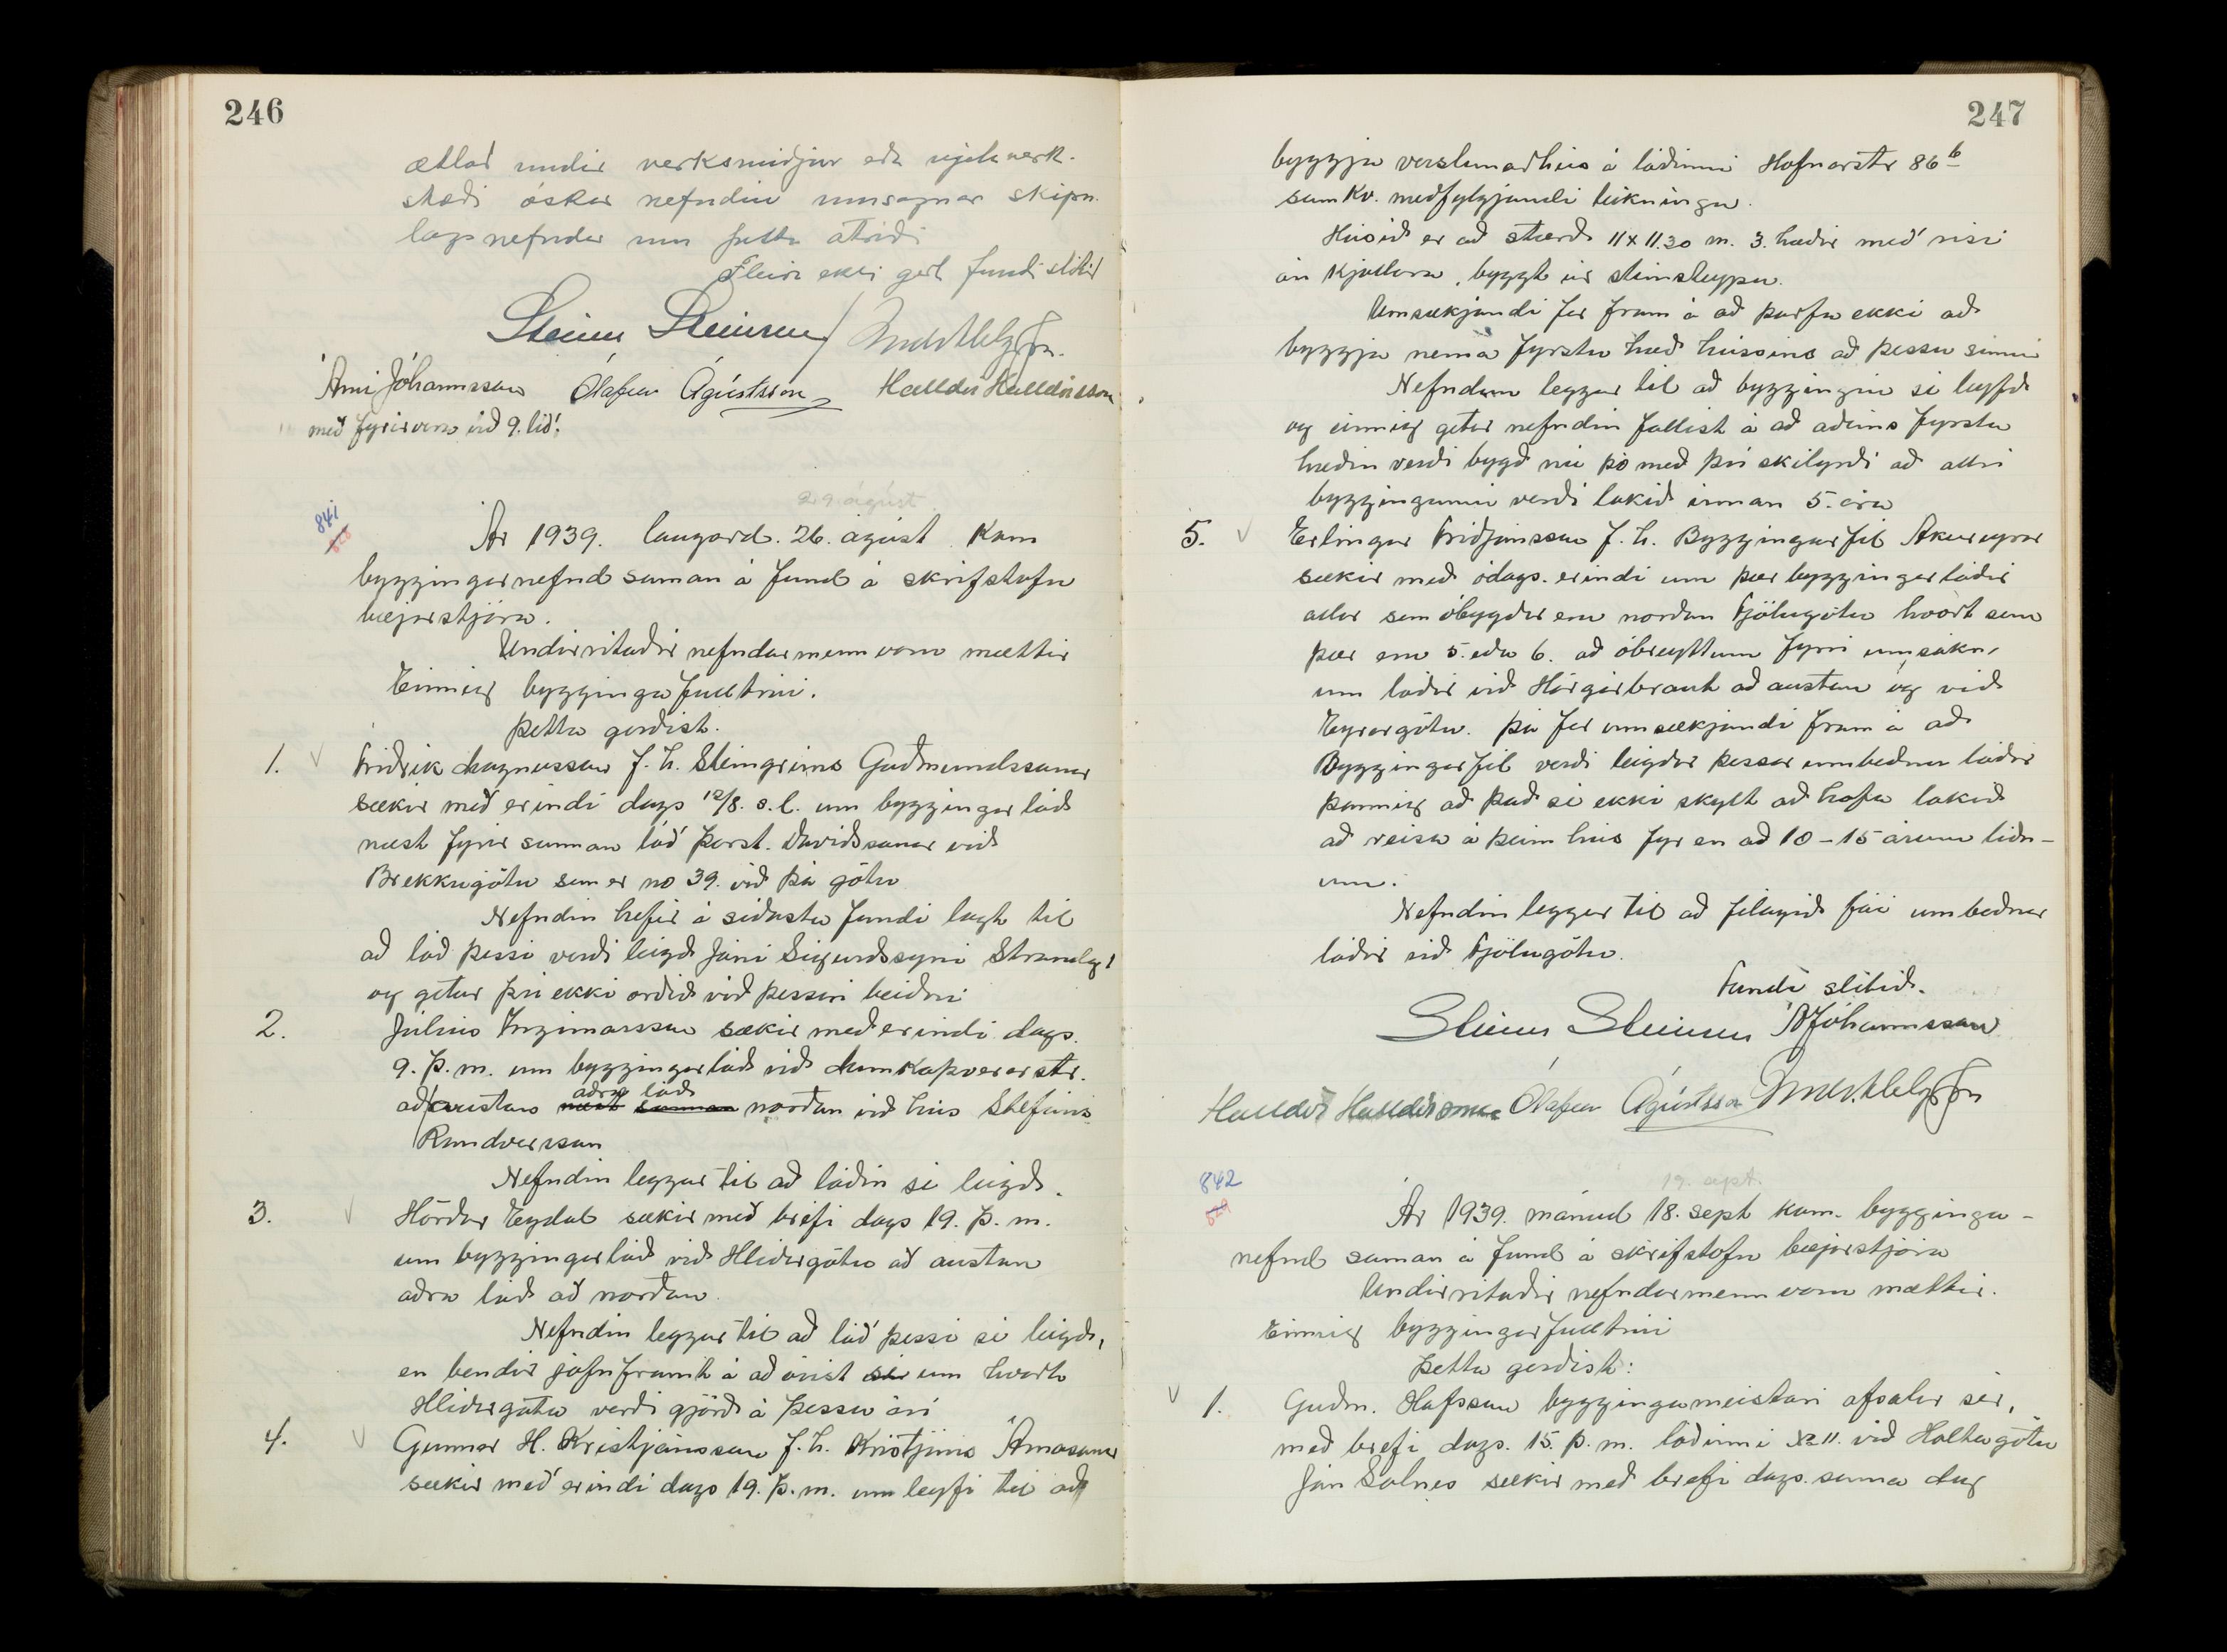 246
ætlað undir verksmiðjur eða vjelaverk-
stæði óskar nefndin umsagnar skipu-
lagsnefndar um þetta atriði
Fleira ekki gert fundi slitið
Steinn Steinsen
Árni Jóhannsson Ólafur Ágústsson Halldór Halldórsson
með fyrirvara við 9. lið.
29 ágúst
841
Ár 1939. laugard. 26. ágúst kom
byggingarnefnd saman á fund á skrifstofu
bæjarstjóra.
Undirritaðir nefndarmenn voru mættir
Einnig byggingafulltrúi.
Þetta gerðist.
1. Friðrik Magnússon f. h. Steingríms Guðmundssonar
sækir með erindi dags 12/8. s.l. um byggingarlóð
næst fyrir sunnan lóð Þorst. Davíðssonar við
Brekkugötu sem er no 39. við þá götu
Nefndin hefir á síðasta fundi lagt til
að lóð þessi verði leigð Jóni Sigurðssyni Strandg 1
og getur því ekki orðið við þessari beiðni
2. Júlíus Ingimarsson sækir með erindi dags.
9. þ. m. um byggingarlóð við Munkaþverárstr.
aðra lóð
að austan næst sunnan norðan við hús Stefáns
Randverssonar
Nefndin leggur til að lóðin sé leigð.
3. Hörður Eydal sækir með bréfi dags 19. þ. m.
um byggingarlóð við Hlíðargötu að austan
aðra lóð að norðan.
Nefndin leggur til að lóð þessi sé leigð,
en bendir jafnframt á að óvist sé um hvort
Hlíðargata verði gjörð á þessu ári
4. Gunnar H. Kristjánsson f. h. Kristjáns Árnasonar
sækir með erindi dags 19. þ. m. um leyfi til að
247
byggja verslunarhús á lóðinni Hafnarstr 86 b
samkv. meðfylgjandi teikningu.
Húsið er að stærð 11 x 11.30 m. 3. hæðir með risi
án kjallara, byggt úr steinsteypu.
Umsækjandi fer fram á að þurfa ekki að
byggja nema fyrstu hæð hússins að þessu sinni
Nefndin leggur til að byggingin sé leyfð
og einnig getur nefndin fallist á að aðeins fyrsta
hæðin verði bygð nú þó með því skilyrði að allri
byggingunni verði lokið innan 5. ára
5. Erlingur Friðjónsson f. h. Byggingarfél Akureyrar
sækir með ódags. erindi um þær byggingarlóðir
allar sem óbygðar eru norðan Fjólugötu hvort sem
þær eru 5. eða 6. að óbreyttum fyrri umsókn,
um lóðir við Hörgárbraut að austan og við
Eyrargötu. Þá fer umsækjandi fram á að
Byggingarfél verði leigðar þessar umbeðnu lóðir
þannig að það sé ekki skylt að hafa lokið
að reisa á þeim hús fyr en að 10 – 15 árum liðn-
um.
Nefndin leggur til að félagið fái umbeðnar
lóðir við Fjólugötu.
Fundi slitið.
Steinn Steinsen ÁJóhannsson
Halldór Halldórsson Ólafur Ágústsson
842
19. sept.
Ár 1939. mánud 18. sept kom bygginga-
nefnd saman á fund á skrifstofu bæjarstjóra
Undirritaðir nefndarmenn voru mættir.
Einnig byggingarfulltrúi
Þetta gerðist:
1. Guðm. Hafsson byggingameistari afsalar sér,
með bréfi dags. 15. þ. m. lóðinni № 11. við Holtagötu
Jón Sólnes sækir með bréfi dags. sama dag